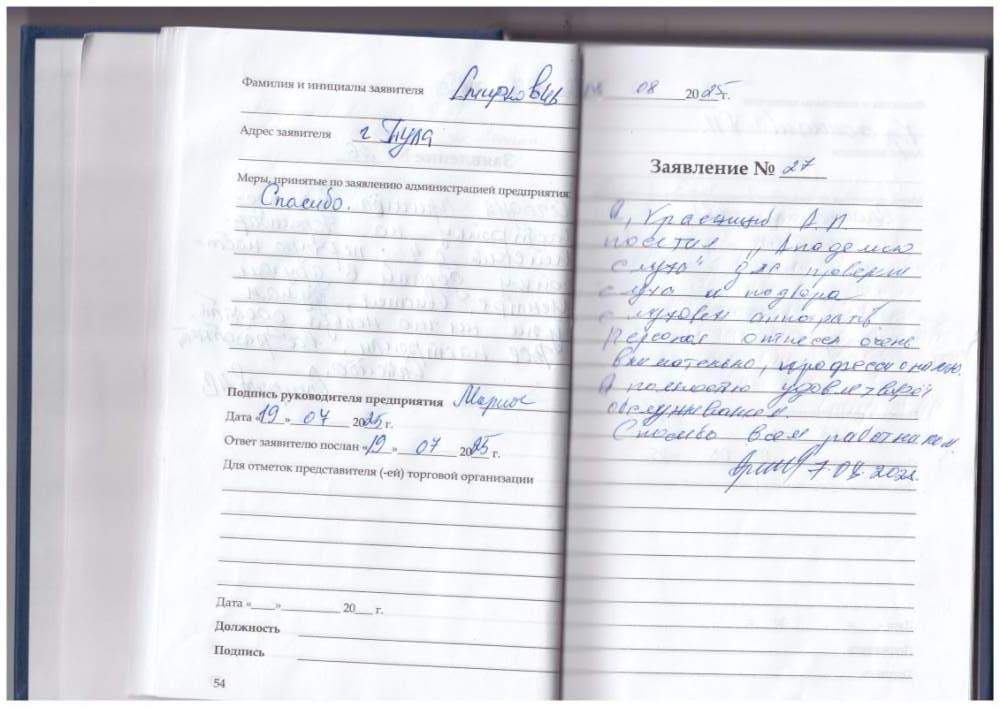 Фамилия и инициалы заявителя
Адрес заявителя г Тула
Меры, принятые по заявлению администрацией предприятия:
Спасибо.
Подпись руководителя предприятия
Дата «19» 07 2025 г.
Ответ заявителю послан «19» 07 2025 г.
Для отметок представителя (-ей) торговой организации
Дата «___»__________ 20___ г.
Должность
Подпись
54
08 2025 г.
Заявление № 27
Я, А. П.
посетил „Академию
слуха" для проверки
слуха и подбора
слуховых аппаратов
Персонал отнесся очень
внимательно, профессионально.
Я полностью
обслуживанием.
Спасибо всем работникам.